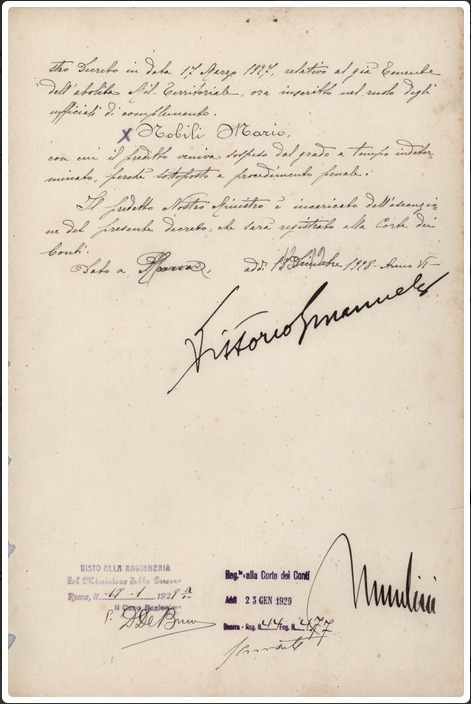 stro Decreto in data 17 Marzo 1927, relativo al già Tenente
dell'abolita Mil. Territoriale, ora inscritto nel ruolo degli
ufficiali di complemento.
X Nobili Mario,
con cui il predetto veniva sospeso dal grado a tempo indeter-
minato, perché sottoposto a procedimento penale.
Il predetto Nostro Ministro è incaricato dell'esecuzio
ne del presente decreto, che sarà registrato alla Corte dei
Conti.
Dato a Roma, addì 1928 - Anno VI -
Vittorio Emanuele
Mussolini
VISTO ALLA RAGIONERIA
del Ministero della Guerra
Roma, il 17 . 1 192
Il Capo Ragioniere
Reg.to alla Corte dei Conti
Addì 23 GEN 1929
Guerra - Reg. N. 44 / Fog. N. 477